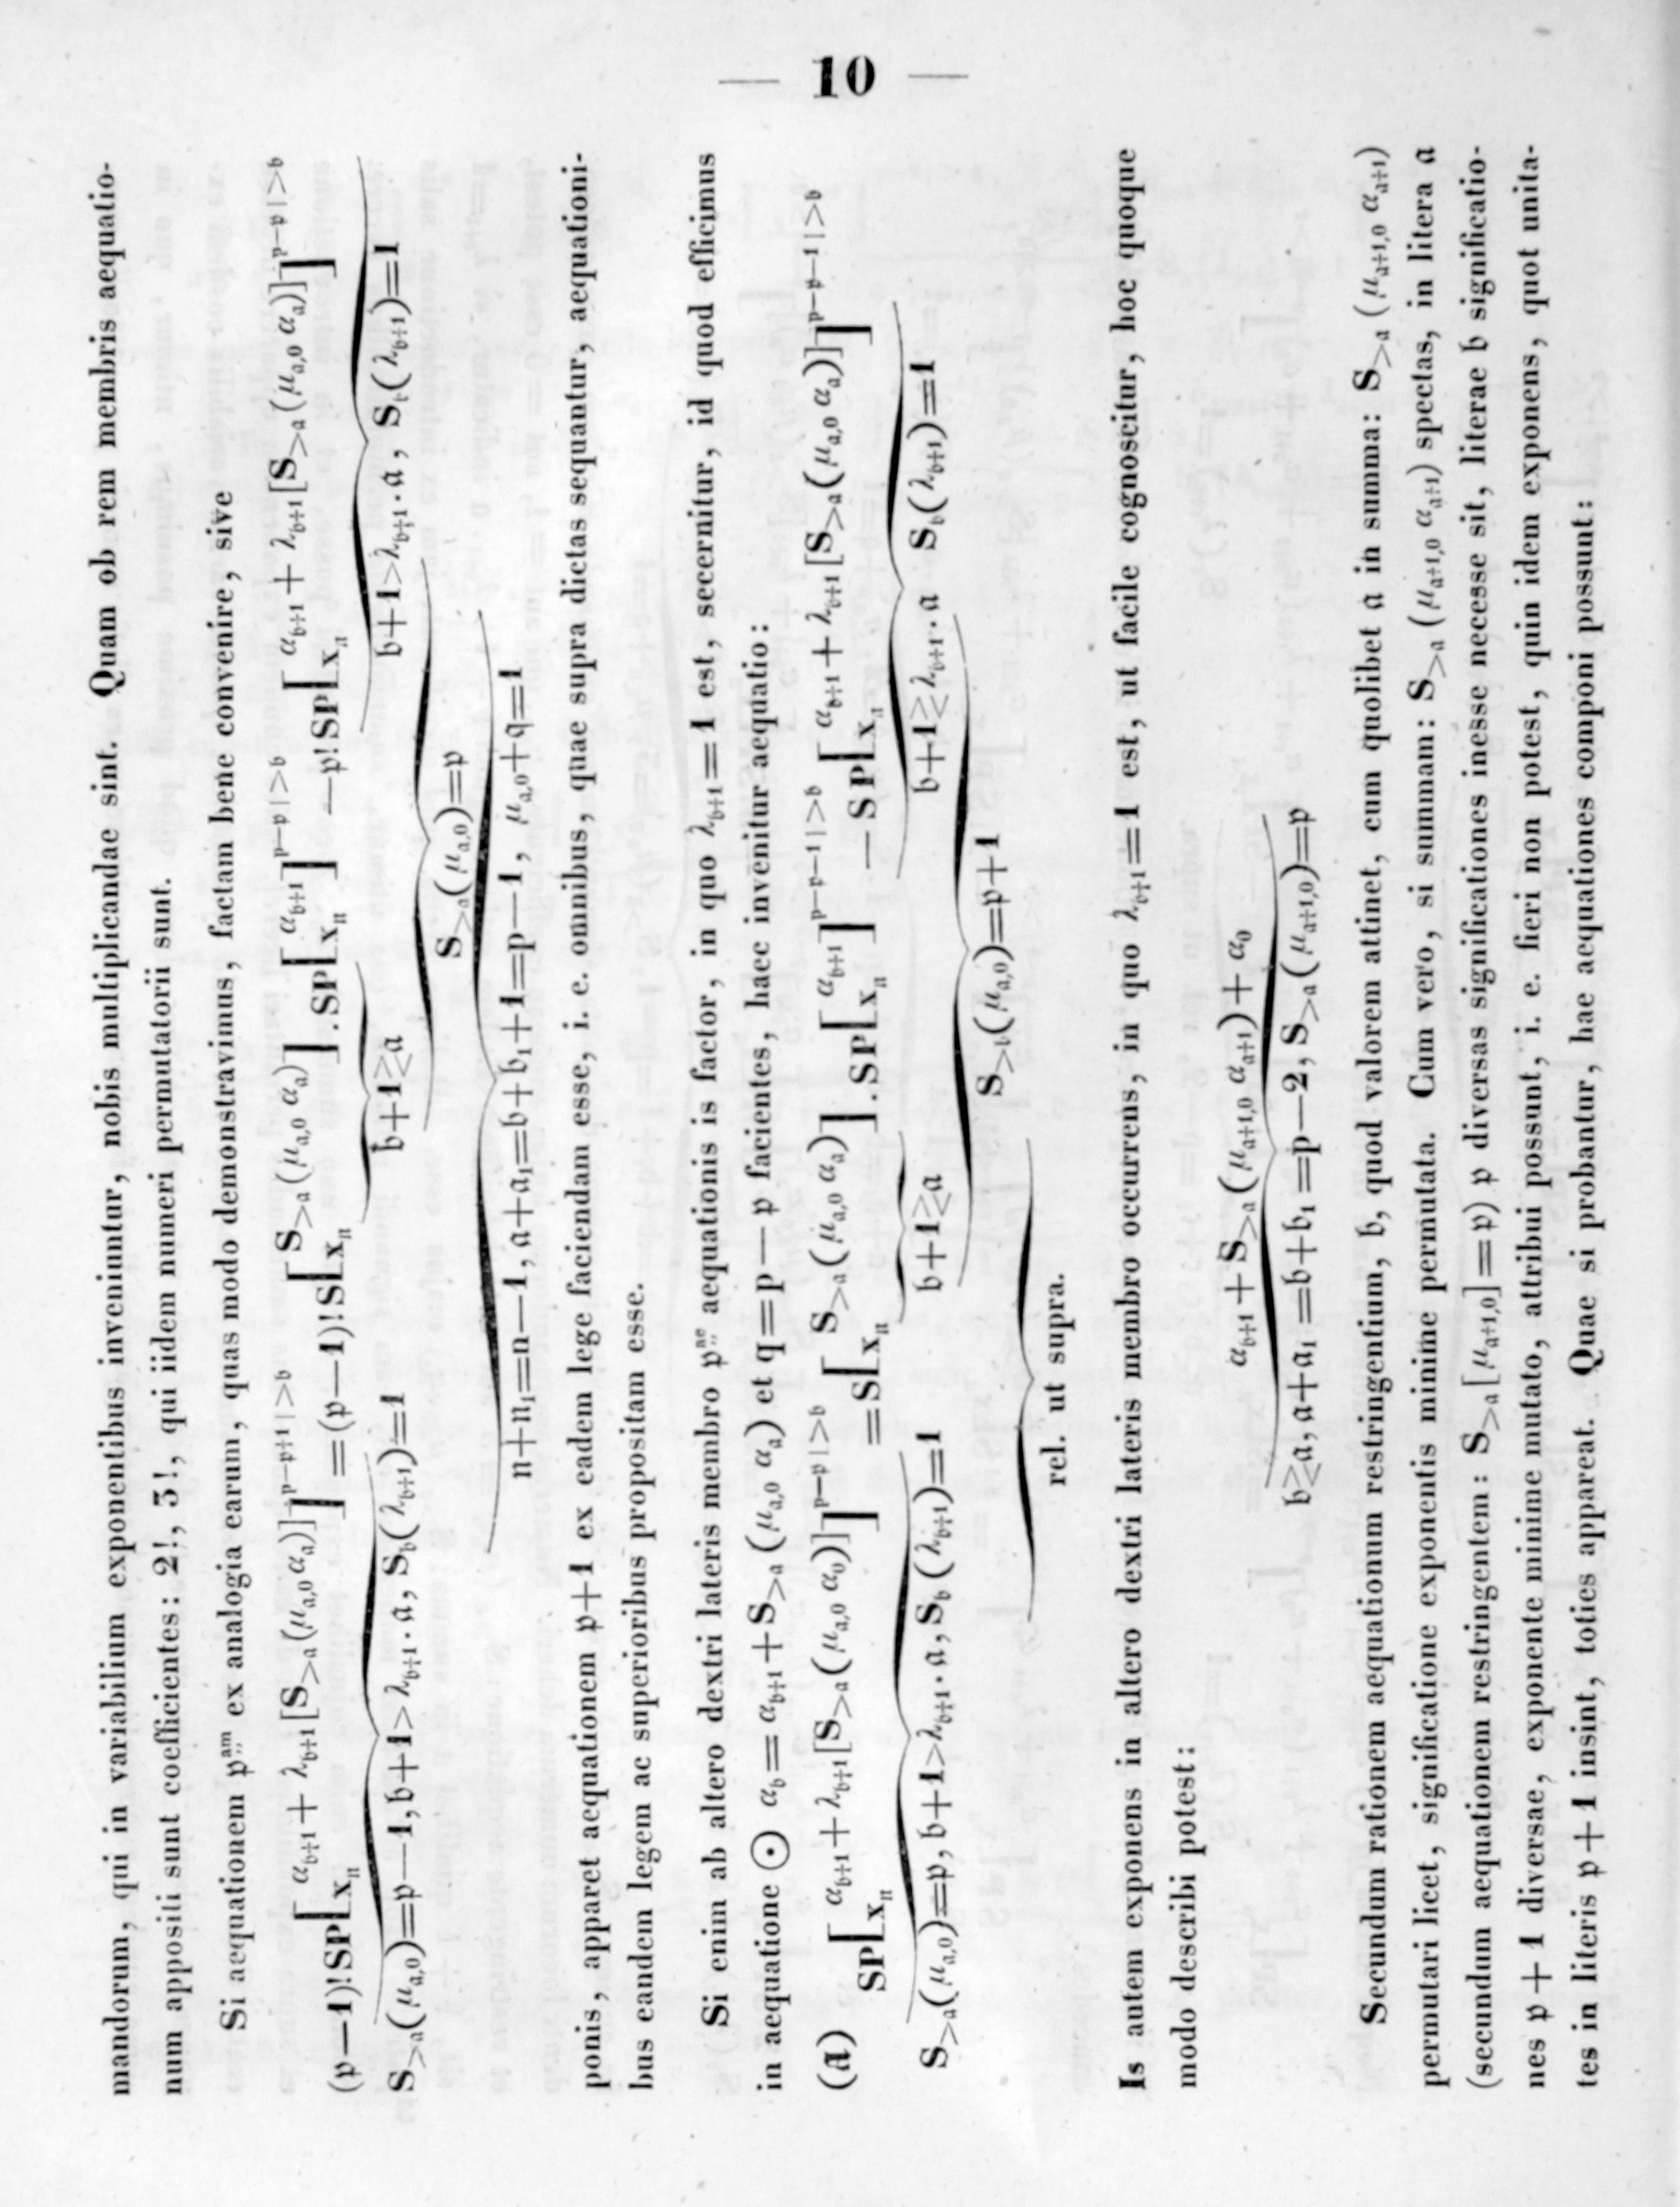 — 10 —
mandorum, qui in variabilium exponentibus inveniuntur, nobis multiplicandae sint. Quam ob rem membris aequatio-
num appositi sunt coefficientes: 2!, 3!, qui iidem numeri permutatorii sunt.
Si aequationem 𝔭^{am} ex analogia earum, quas modo demonstravimus, factam bene convenire, sive
(𝔭—1)!SP[x_𝔫^{α_{𝔟+1} + λ_{𝔟+1}[S_{>𝔞}(μ_{𝔞,0} α_𝔞)]}]^{p—𝔭+1|>𝔟} =(𝔭—1)!S[x_𝔫^{S_{>𝔞}(μ_{𝔞,0} α_𝔞)}].SP[x_𝔫^{α_{𝔟+1}}]^{p—𝔭|>𝔟} —𝔭!SP[x_𝔫^{α_{𝔟+1} + λ_{𝔟+1}[S_{>𝔞}(μ_{𝔞,0} α_𝔞)]}]^{p—𝔭|>𝔟}
S_{>𝔞}(μ_{𝔞,0})=𝔭—1, 𝔟+1>λ_{𝔟+1}.𝔞, S_𝔟(λ_{𝔟+1})=1 𝔟+1≧𝔞 𝔟+1>λ_{𝔟+1}.𝔞, S_𝔟(λ_{𝔟+1})=1
S_{>𝔞}(μ_{𝔞,0})=𝔭
𝔫+𝔫₁=n—1, 𝔞+𝔞₁=𝔟+𝔟₁+1=p—1, μ_{𝔞,0}+q=1
ponis, apparet aequationem 𝔭+1 ex eadem lege faciendam esse, i. e. omnibus, quae supra dictas sequantur, aequationi-
bus eandem legem ac superioribus propositam esse.
Si enim ab altero dextri lateris membro 𝔭^{ae} aequationis is factor, in quo λ_{𝔟+1}=1 est, secernitur, id quod efficimus
in aequatione ⊙ α_𝔟=α_{𝔟+1}+S_{>𝔞}(μ_{𝔞,0} α_𝔞) et q=p—𝔭 facientes, haec invenitur aequatio:
(𝔞) SP[x_𝔫^{α_{𝔟+1} + λ_{𝔟+1}[S_{>𝔞}(μ_{𝔞,0} α_0)]}]^{p—𝔭|>𝔟} =S[x_𝔫^{S_{>𝔞}(μ_{𝔞,0} α_𝔞)}].SP[x_𝔫^{α_{𝔟+1}}]^{p—𝔭—1|>𝔟} —SP[x_𝔫^{α_{𝔟+1} + λ_{𝔟+1}[S_{>𝔞}(μ_{𝔞,0} α_𝔞)]}]^{p—𝔭—1|>𝔟}
S_{>𝔞}(μ_{𝔞,0})=𝔭, 𝔟+1>λ_{𝔟+1}.𝔞, S_𝔟(λ_{𝔟+1})=1 𝔟+1≧𝔞 𝔟+1≧λ_{𝔟+1}.𝔞 S_𝔟(λ_{𝔟+1})=1
S_{>𝔟}(μ_{𝔞,0})=𝔭+1
rel. ut supra.
Is autem exponens in altero dextri lateris membro occurrens, in quo λ_{𝔟+1}=1 est, ut facile cognoscitur, hoc quoque
modo describi potest:
α_{𝔟+1} + S_{>𝔞}(μ_{𝔞+1,0} α_{𝔞+1}) + α_0
𝔟≧𝔞, 𝔞+𝔞₁ =𝔟+𝔟₁ =p—2, S_{>𝔞}(μ_{𝔞+1,0})=𝔭
Secundum rationem aequationum restringentium, 𝔟, quod valorem attinet, cum quolibet 𝔞 in summa: S_{>𝔞}(μ_{𝔞+1,0} α_{𝔞+1})
permutari licet, significatione exponentis minime permutata. Cum vero, si summam: S_{>𝔞}(μ_{𝔞+1,0} α_{𝔞+1}) spectas, in litera 𝔞
(secundum aequationem restringentem: S_{>𝔞}[μ_{𝔞+1,0}]=𝔭) 𝔭 diversas significationes inesse necesse sit, literae 𝔟 significatio-
nes 𝔭+1 diversae, exponente minime mutato, attribui possunt, i. e. fieri non potest, quin idem exponens, quot unita-
tes in literis 𝔭+1 insint, toties appareat. Quae si probantur, hae aequationes componi possunt: